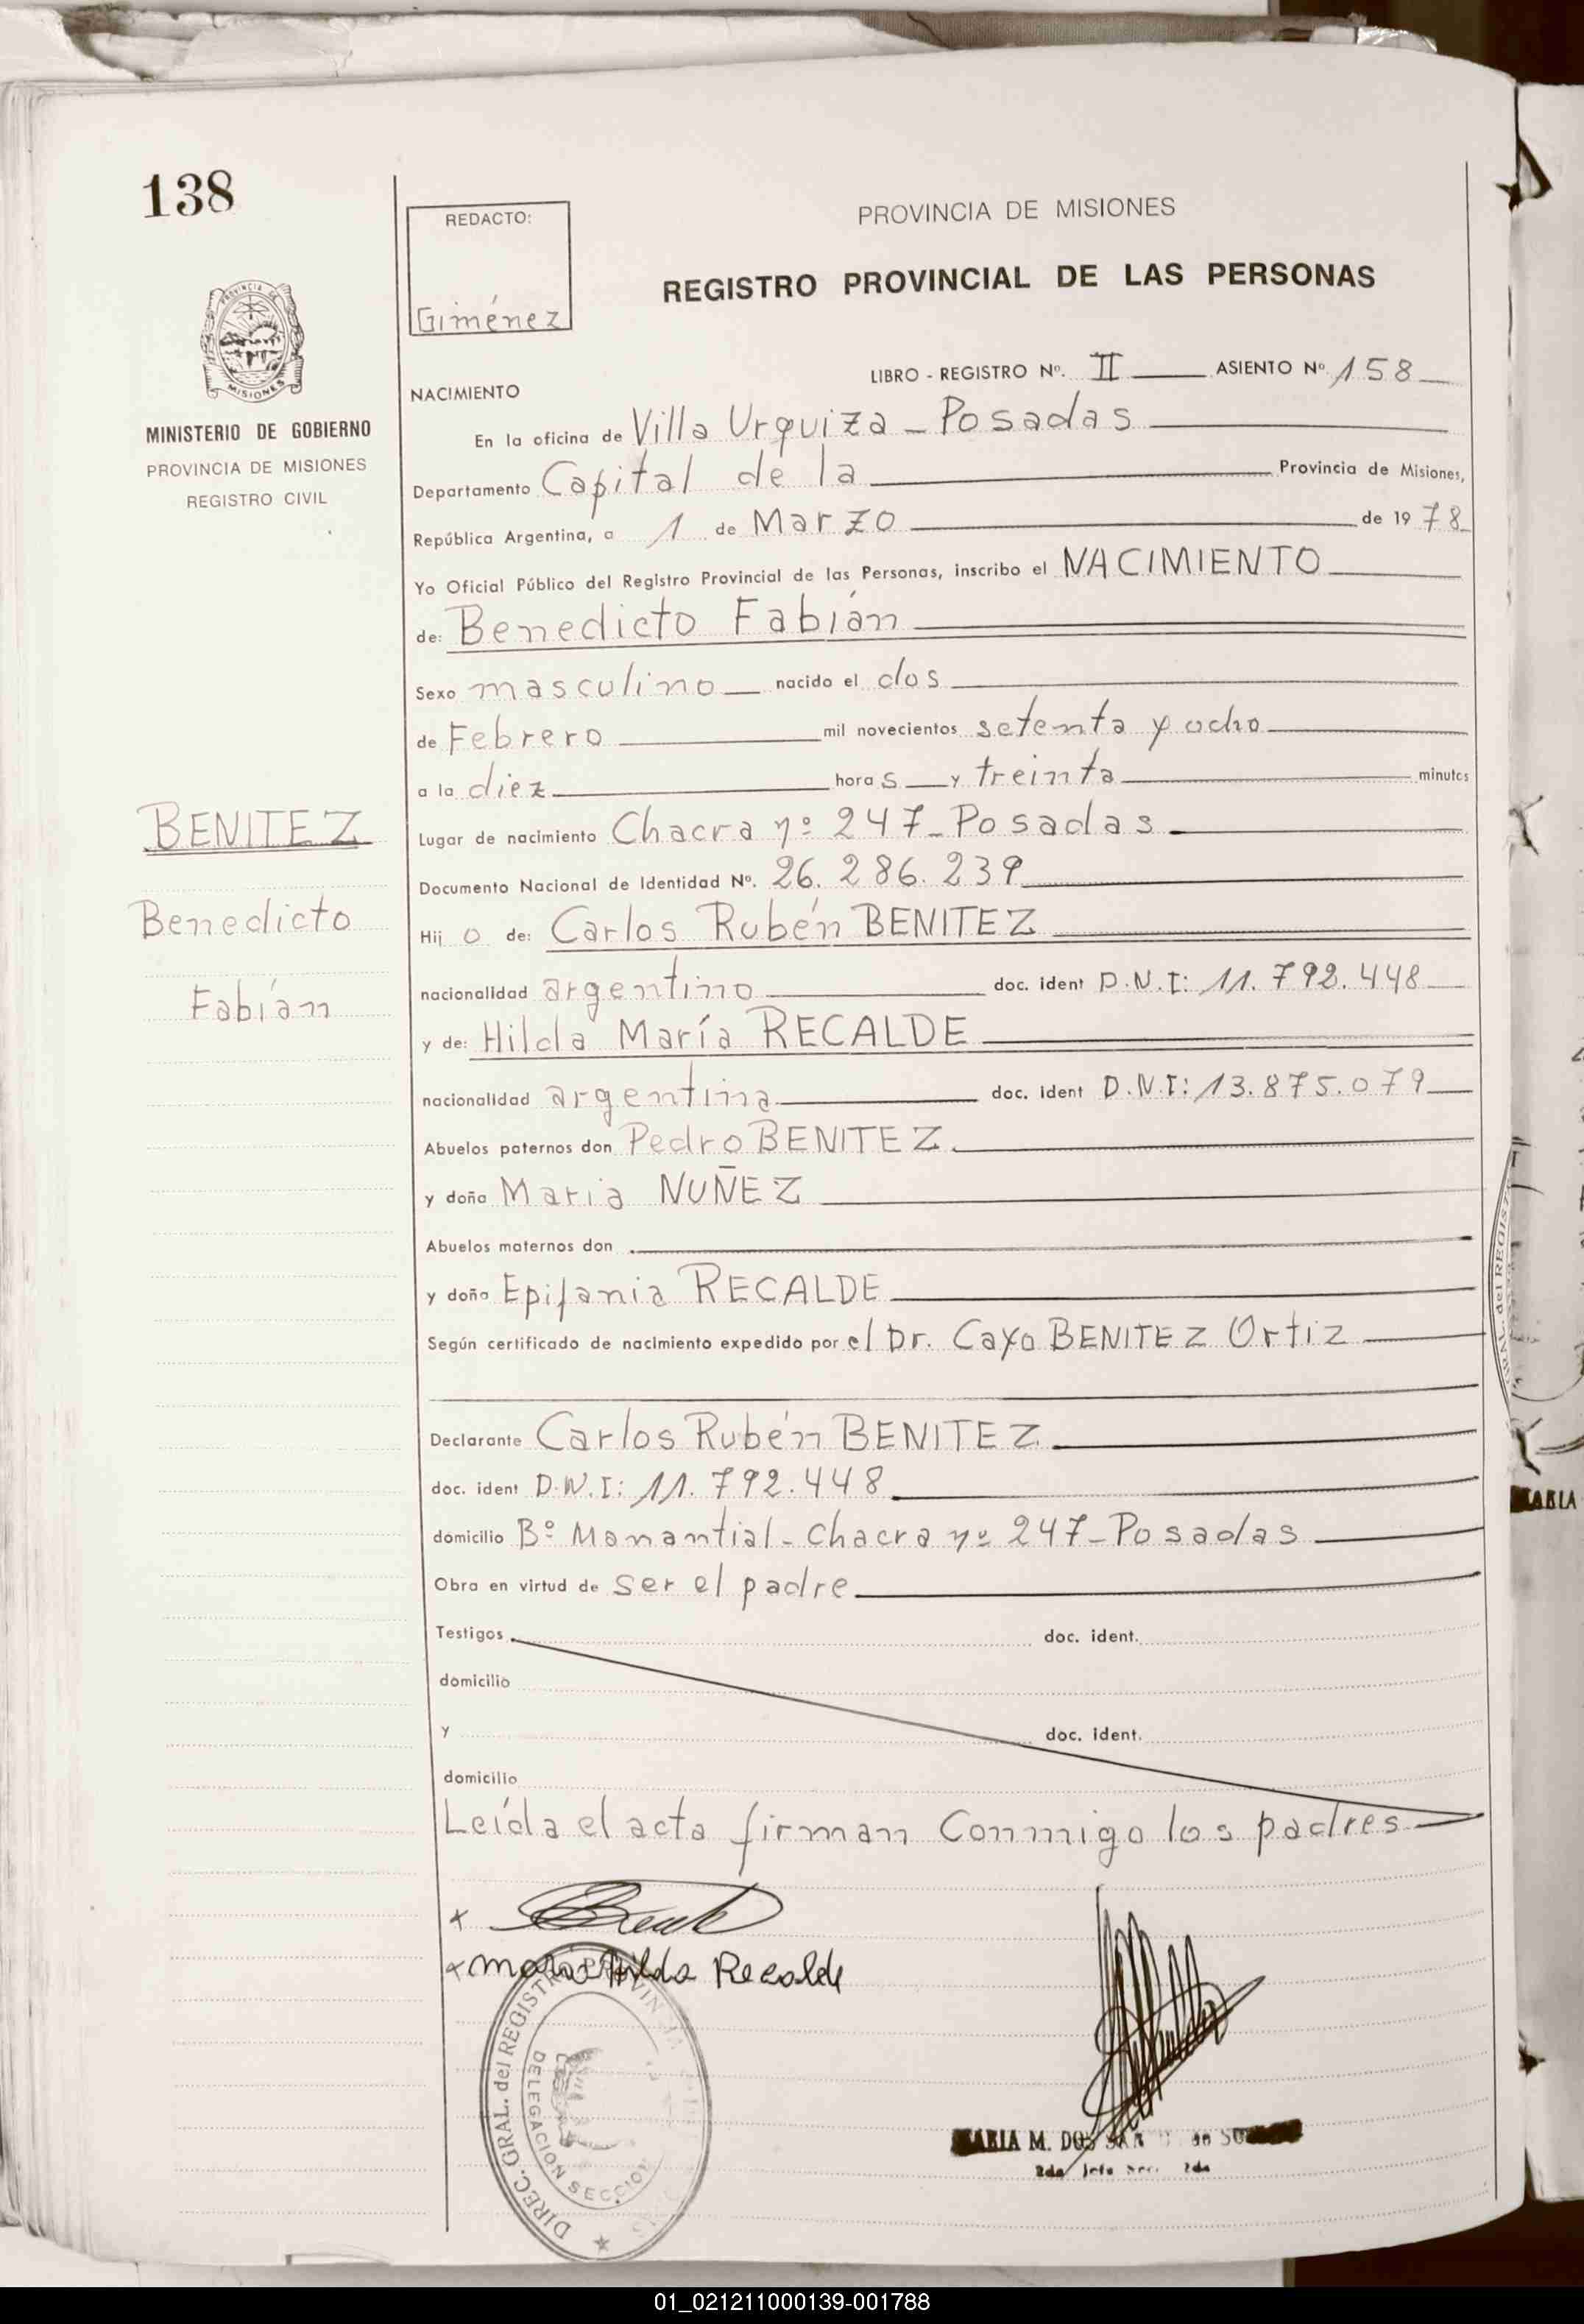 138
REDACTO:
Giménez
PROVINCIA DE MISIONES
REGISTRO PROVINCIAL DE LAS PERSONAS
PROVINCIA DE
MISIONES
MINISTERIO DE GOBIERNO
PROVINCIA DE MISIONES
REGISTRO CIVIL
LIBRO - REGISTRO Nº. II ASIENTO Nº 158
NACIMIENTO
En la oficina de Villa Urquiza - Posadas
Departamento Capital de la Provincia de Misiones,
República Argentina, a 1 de Marzo de 1978
Yo Oficial Público del Registro Provincial de las Personas, inscribo el NACIMIENTO
de: Benedicto Fabián
Sexo masculino nacido el dos
de Febrero mil novecientos setenta y ocho
a la diez horas y treinta minutos
Lugar de nacimiento Chacra nº 247 - Posadas
Documento Nacional de Identidad Nº. 26.286.239
Hijo de: Carlos Rubén BENITEZ
nacionalidad argentino doc. ident D.N.I: 11.792.448
y de: Hilda María RECALDE
nacionalidad argentina doc. ident D.N.I: 13.875.079
Abuelos paternos don Pedro BENITEZ
y doña Maria NUÑEZ
Abuelos maternos don
y doña Epifania RECALDE
Según certificado de nacimiento expedido por el Dr. Cayo BENITEZ Ortiz
Declarante Carlos Rubén BENITEZ
doc. ident D.N.I: 11.792.448
domicilio Bº Manantial - Chacra nº 247 - Posadas
Obra en virtud de ser el padre
Testigos doc. ident.
domicilio
y doc. ident.
domicilio
Leída el acta firman conmigo los padres
BENITEZ
Benedicto
Fabián
x
x Maria Hilda Recalde
DIREC. GRAL. del REGISTRO PROVINCIAL
DELEGACION SECCION
MARIA M. DOS
2da Jefe Sec. 2da
GRAL. del REGIST
MARIA
01_021211000139-001788